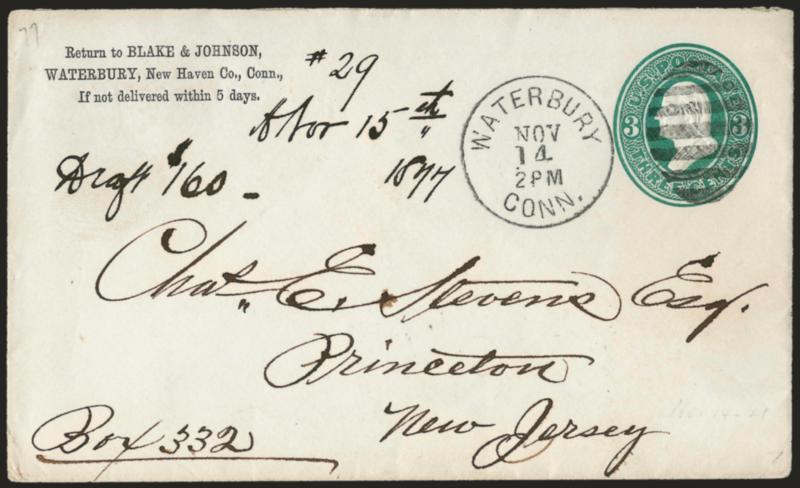 77
Return to BLAKE & JOHNSON,
WATERBURY, New Haven Co., Conn.,
If not delivered within 5 days.
#29
Nov 15th
1877
Draft $160 -
WATERBURY
NOV
14
2PM
CONN.
U.S. POSTAGE
3 3
THREE CENTS
Chas. E. Stevens Esq.
Princeton
New Jersey
Box 332